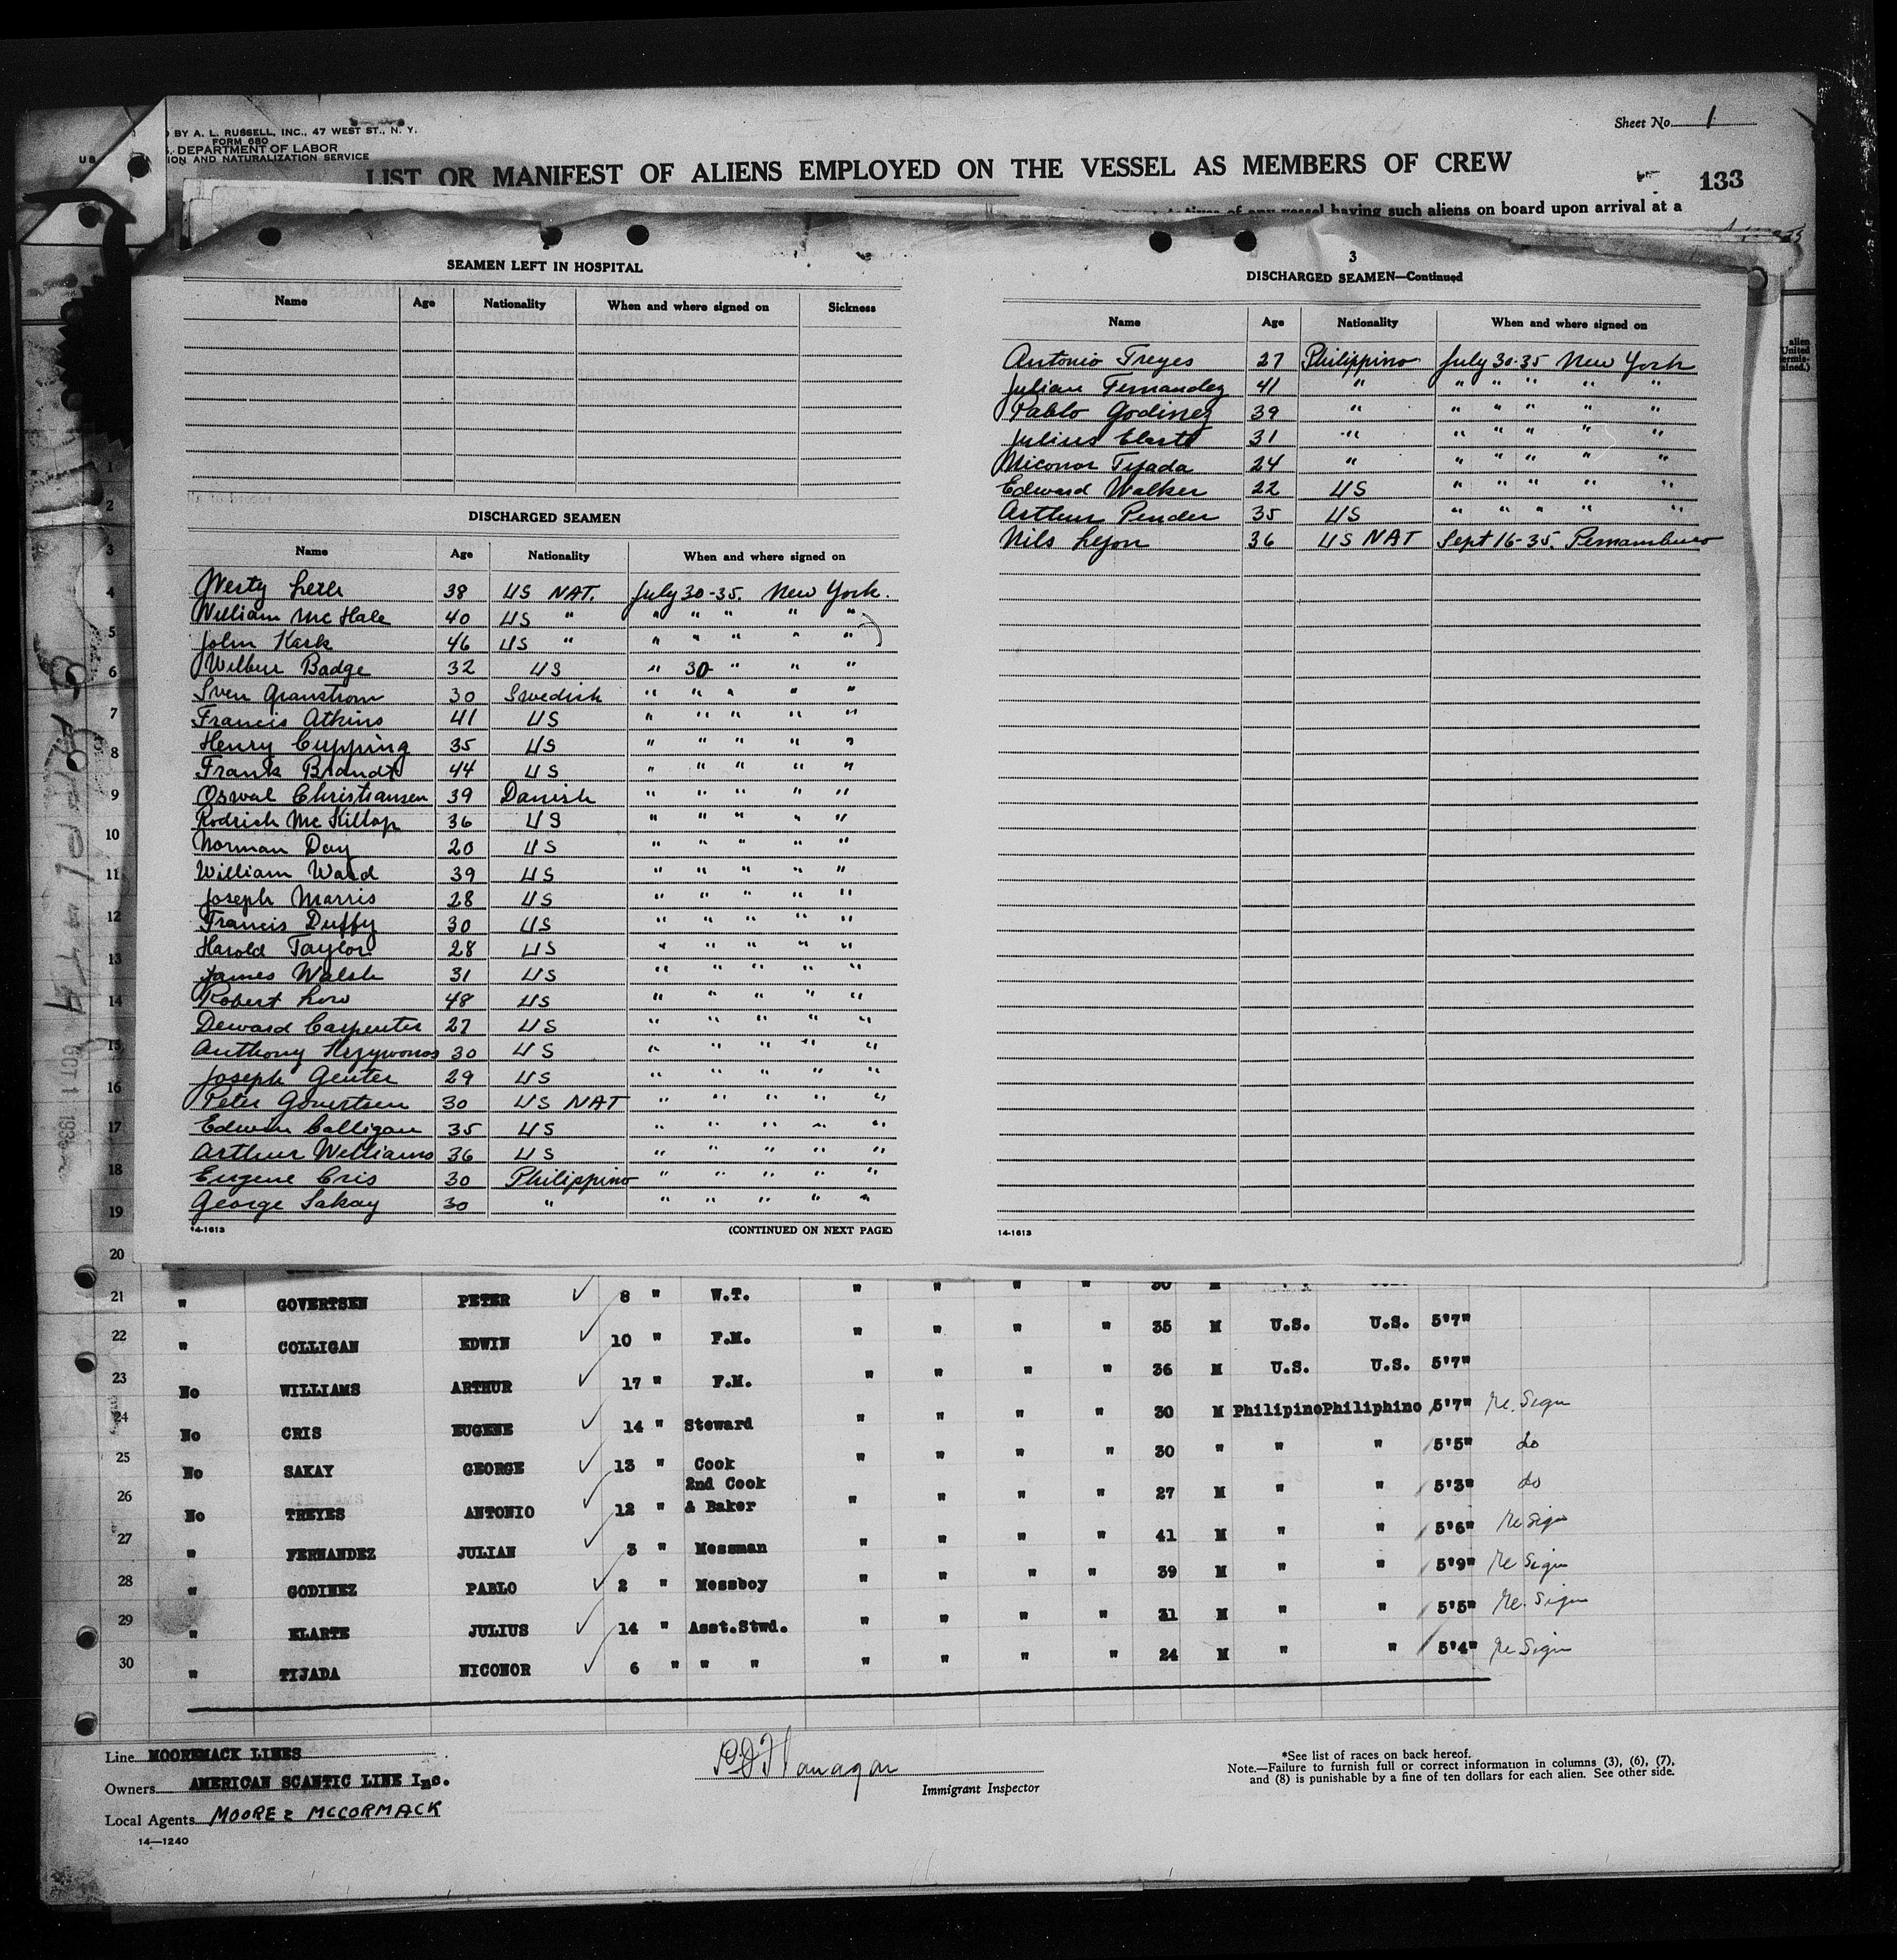 BY A. L. RUSSELL, INC., 47 WEST ST., N. Y.
FORM 680
DEPARTMENT OF LABOR
ION AND NATURALIZATION SERVICE
Sheet No. 1
LIST OR MANIFEST OF ALIENS EMPLOYED ON THE VESSEL AS MEMBERS OF CREW
133
of any vessel having such aliens on board upon arrival at a
SEAMEN LEFT IN HOSPITAL
Name Age Nationality When and where signed on Sickness
DISCHARGED SEAMEN
Name Age Nationality When and where signed on
Westy 38 US NAT. July 30-35. New York.
William Mc Hale 40 US " " " " " "
John Kark 46 US " " " " " "
Wilbur Badge 32 US " 30 " " "
Sven Granstrom 30 Swedish " " " " "
Francis Atkins 41 US " " " " "
Henry Cupping 35 US " " " " "
Frank Brandt 44 US " " " " "
Osval Christiansen 39 Danish " " " " "
Rodrich Mc Killop 36 US " " " " "
Norman Day 20 US " " " " "
William Ward 39 US " " " " "
Joseph Marris 28 US " " " " "
Francis Duffy 30 US " " " " "
Harold Taylor 28 US " " " " "
James Walsh 31 US " " " " "
Robert Low 48 US " " " " "
Deward Carpenter 27 US " " " " "
Anthony Krzywonos 30 US " " " " "
Joseph Genter 29 US " " " " "
Peter Govertsen 30 US NAT " " " " "
Edwin Colligan 35 US " " " " "
Arthur Williams 36 US " " " " "
Eugene Cris 30 Philippino " " " " "
George Sakay 30 " " " " " "
14-1613 (CONTINUED ON NEXT PAGE)
3
DISCHARGED SEAMEN—Continued
Name Age Nationality When and where signed on
Antonio Treyes 27 Philippino July 30-35 New York
Julian Fernandez 41 " " " " " "
Pablo Godinez 39 " " " " " "
Julius Elarte 31 " " " " " "
Niconor Tijada 24 " " " " " "
Edward Walker 22 US " " " " "
Arthur Pender 35 US " " " " "
Nils Lejon 36 US NAT Sept 16-35. Pernambuco
14-1613
1
2
3
4
5
6
7
8
9
10
11
12
13
14
15
16
17
18
19
20
21 " GOVERTSEN PETER 8 " W.T. " " " " 30 M
22 " COLLIGAN EDWIN 10 " F.M. " " " " 35 M U.S. U.S. 5'7"
23 No WILLIAMS ARTHUR 17 " F.M. " " " " 36 M U.S. U.S. 5'7"
24 No CRIS EUGENE 14 " Steward " " " " 30 M Philipino Philiphino 5'7" Re. Sign
25 No SAKAY GEORGE 13 " Cook " " " " 30 " " " 5'5" do
26 No TREYES ANTONIO 12 " 2nd Cook & Baker " " " " 27 M " " 5'3" do
27 " FERNANDEZ JULIAN 3 " Messman " " " " 41 M " " 5'6" Re Sign
28 " GODINEZ PABLO 2 " Messboy " " " " 39 M " " 5'9" Re Sign
29 " ELARTE JULIUS 14 " Asst.Stwd. " " " " 31 M " " 5'5" Re. Sign
30 " TIJADA NICONOR 6 " " " " " " " 24 M " " 5'4" Re Sign
Line MOOREMACK LINES
Owners AMERICAN SCANTIC LINE Inc.
Local Agents MOORE & MCCORMACK
14—1240
Flanagan
Immigrant Inspector
*See list of races on back hereof.
Note.—Failure to furnish full or correct information in columns (3), (6), (7),
and (8) is punishable by a fine of ten dollars for each alien. See other side.